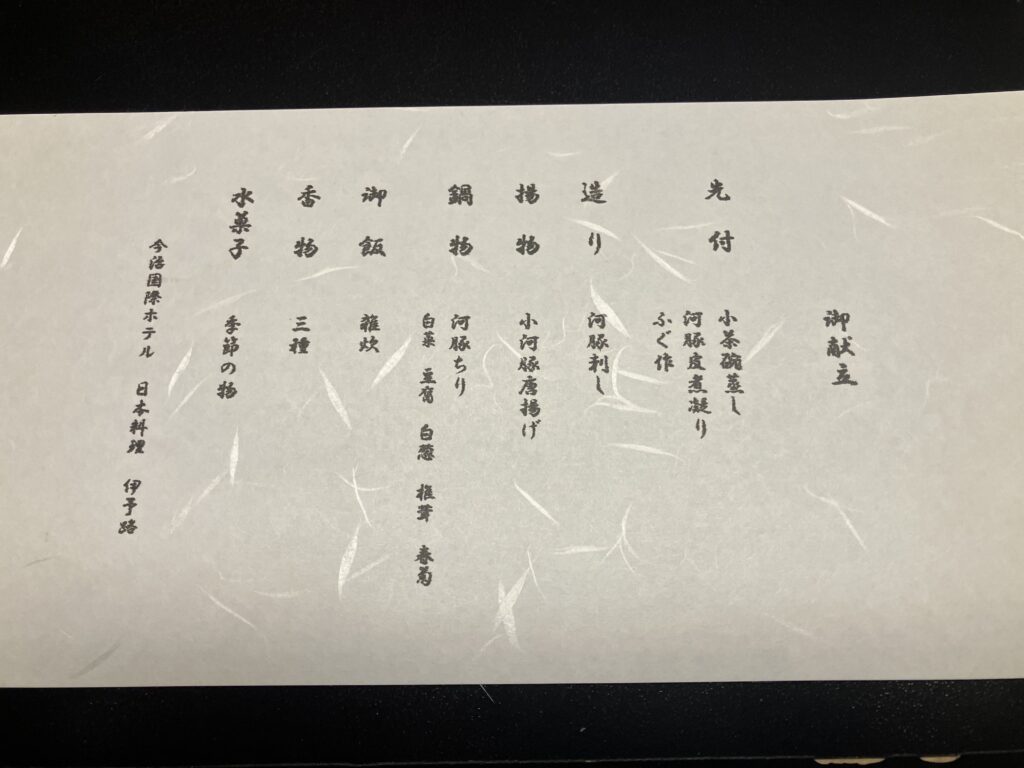 御献立
先付
小茶碗蒸し
河豚皮煮凝り
ふぐ作
造り
河豚刺し
揚物
小河豚唐揚げ
鍋物
河豚ちり
白菜 豆腐 白葱 椎茸 春菊
御飯
雑炊
香物
三種
水菓子
季節の物
今治国際ホテル 日本料理 伊予路